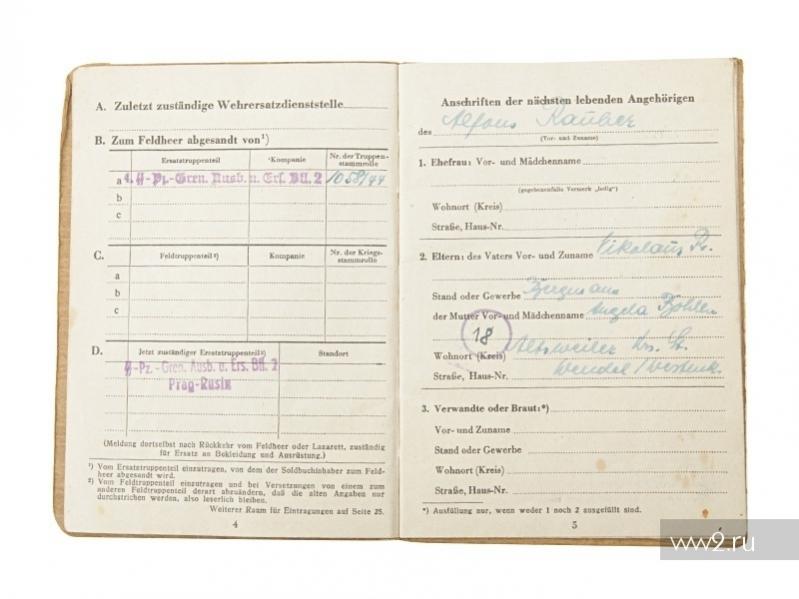 A. Zuletzt zuständige Wehrersatzdienststelle
B. Zum Feldheer abgesandt von¹)
Ersatztruppenteil Kompanie Nr. der Truppen-
stammrolle
a 4. ϟϟ-Pz.-Gren. Ausb. u. Ers. Btl. 2 1058/44
b
c
C. Feldtruppenteil²) Kompanie Nr. der Kriegs-
stammrolle
a
b
c
D. Jetzt zuständiger Ersatztruppenteil²) Standort
ϟϟ-Pz.-Gren. Ausb. u. Ers. Btl. 2
Prag-Rusin
(Meldung dortselbst nach Rückkehr vom Feldheer oder Lazarett, zuständig
für Ersatz an Bekleidung und Ausrüstung.)
¹) Vom Ersatztruppenteil einzutragen, von dem der Soldbuchinhaber zum Feld-
heer abgesandt wird.
²) Vom Feldtruppenteil einzutragen und bei Versetzungen von einem zum
anderen Feldtruppenteil derart abzuändern, daß die alten Angaben nur
durchstrichen werden, also leserlich bleiben.
Weiterer Raum für Eintragungen auf Seite 25.
4
Anschriften der nächsten lebenden Angehörigen
des Alfons Rauber
(Vor- und Zuname)
1. Ehefrau: Vor- und Mädchenname
(gegebenenfalls Vermerk „ledig")
Wohnort (Kreis)
Straße, Haus-Nr.
2. Eltern: des Vaters Vor- und Zuname Nikolaus R.
Stand oder Gewerbe Bergmann
der Mutter Vor- und Mädchenname Angela
18
Wohnort (Kreis) Alsweiler Krs. St.
Straße, Haus-Nr. Wendel / Westmk.
3. Verwandte oder Braut:*)
Vor- und Zuname
Stand oder Gewerbe
Wohnort (Kreis)
Straße, Haus-Nr.
*) Ausfüllung nur, wenn weder 1 noch 2 ausgefüllt sind.
5
ww2.ru